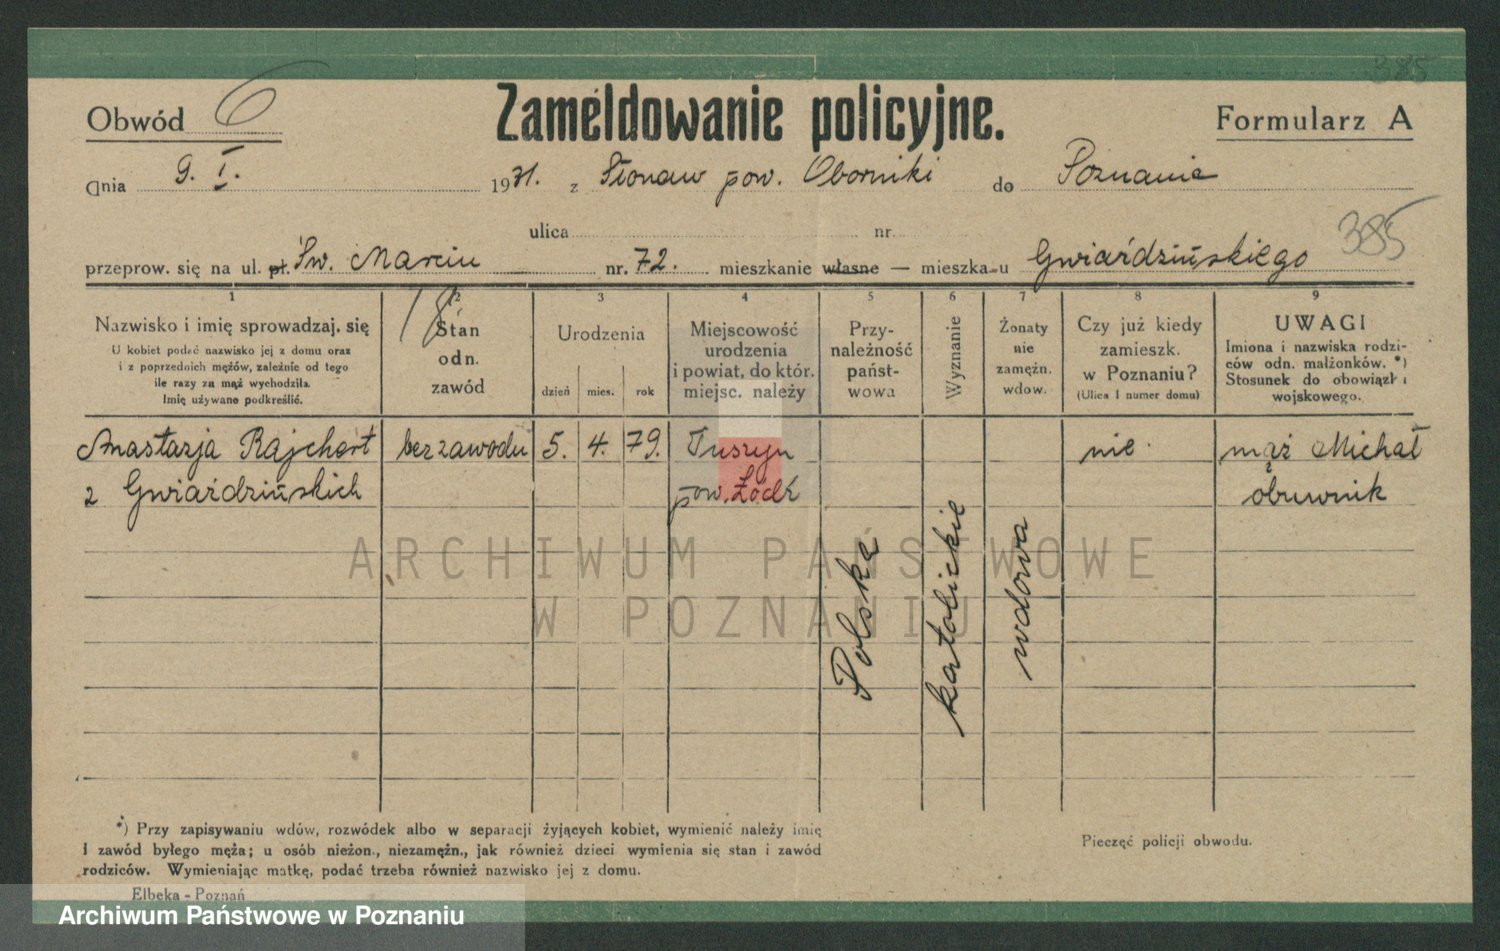 385
Obwód 6 Zameldowanie policyjne. Formularz A
Dnia 9. I. 1931. z Słonaw pow. Oborniki do Poznania
ulica nr. 385
przeprow. się na ul. pl. Św. Marcin nr. 72. mieszkanie własne — mieszka u Gwiaździńskiego
1 2 3 4 5 6 7 8 9
18
Nazwisko i imię sprowadzaj. się
U kobiet podać nazwisko jej z domu oraz
i z poprzednich mężów, zależnie od tego
ile razy za mąż wychodziła.
Imię używane podkreślić.
Stan
odn.
zawód
Urodzenia
dzień mies. rok
Miejscowość
urodzenia
i powiat, do któr.
miejsc. należy
Przy-
należność
państ-
wowa
Wyznanie
Żonaty
nie
zamężn.
wdow.
Czy już kiedy
zamieszk.
w Poznaniu?
(Ulica i numer domu)
UWAGI
Imiona i nazwiska rodzi-
ców odn. małżonków. *)
Stosunek do obowiązk i
wojskowego.
Anastazja Rajchert bez zawodu 5. 4. 79. Tuszyn nie. mąż Michał
z Gwiaździńskich pow. Łódź obuwnik
Polska
katolickie
wdowa
ARCHIWUM PAŃSTWOWE
W POZNANIU
*) Przy zapisywaniu wdów, rozwódek albo w separacji żyjących kobiet, wymienić należy imię
i zawód byłego męża; u osób nieżon., niezamężn., jak również dzieci wymienia się stan i zawód
rodziców. Wymieniając matkę, podać trzeba również nazwisko jej z domu.
Pieczęć policji obwodu.
Elbeka - Poznań
Archiwum Państwowe w Poznaniu